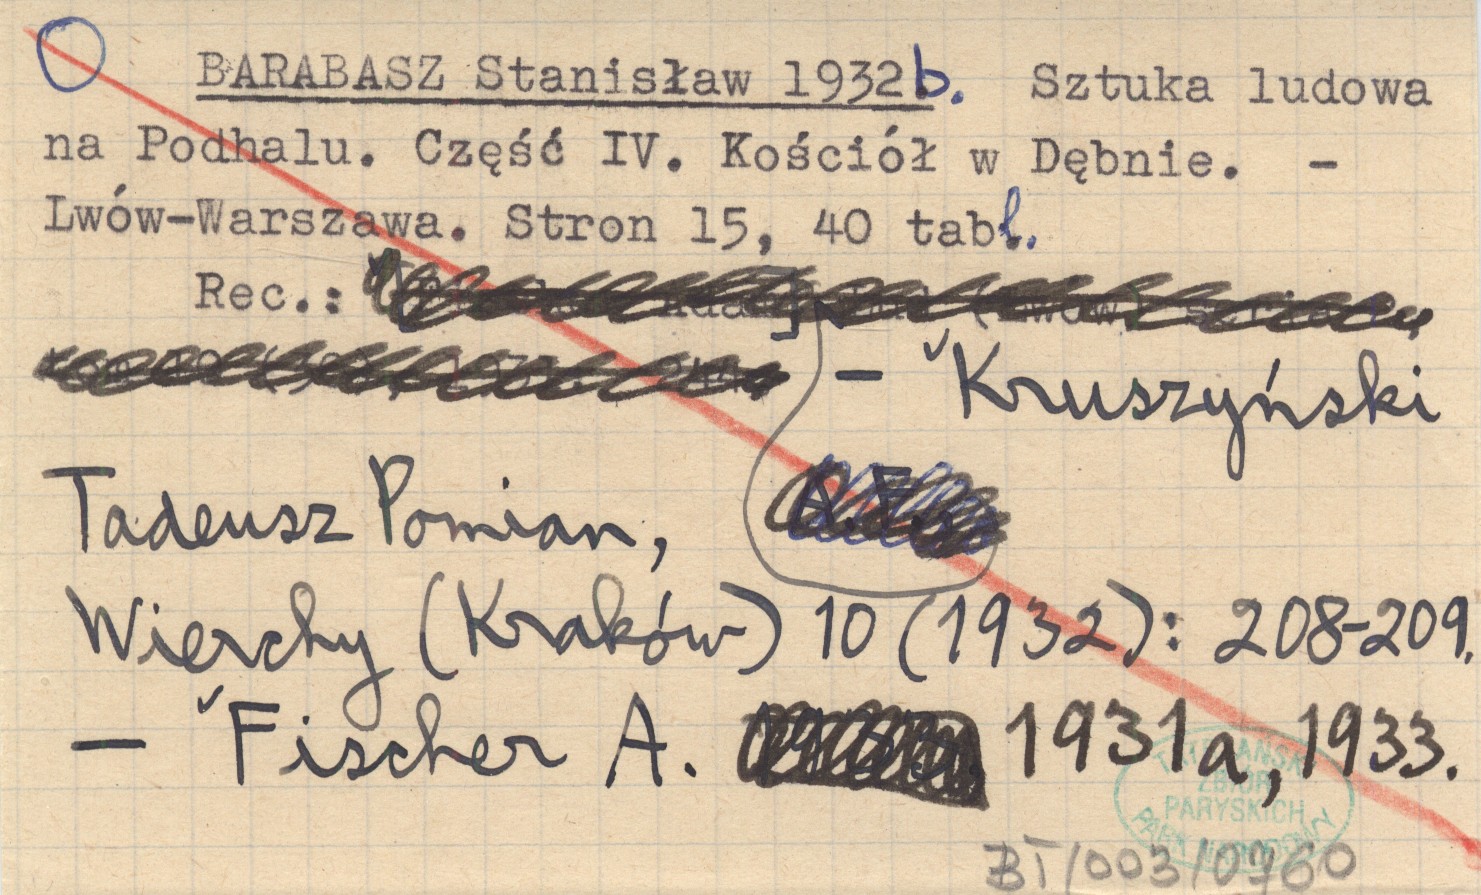 BARABASZ Stanisław 1932b. Sztuka ludowa
na Podhalu. Część IV. Kościół w Dębnie. –
Lwów-Warszawa. Stron 15, 40 tabl.
Rec.:
– Kruszyński
Tadeusz Pomian,
Wierchy (Kraków) 10 (1932): 208-209.
– Fischer A. 1931a, 1933.
TATRZAŃSKI
ZBIÓR
PARYSKICH
PARK NARODOWY
BT/003/0760